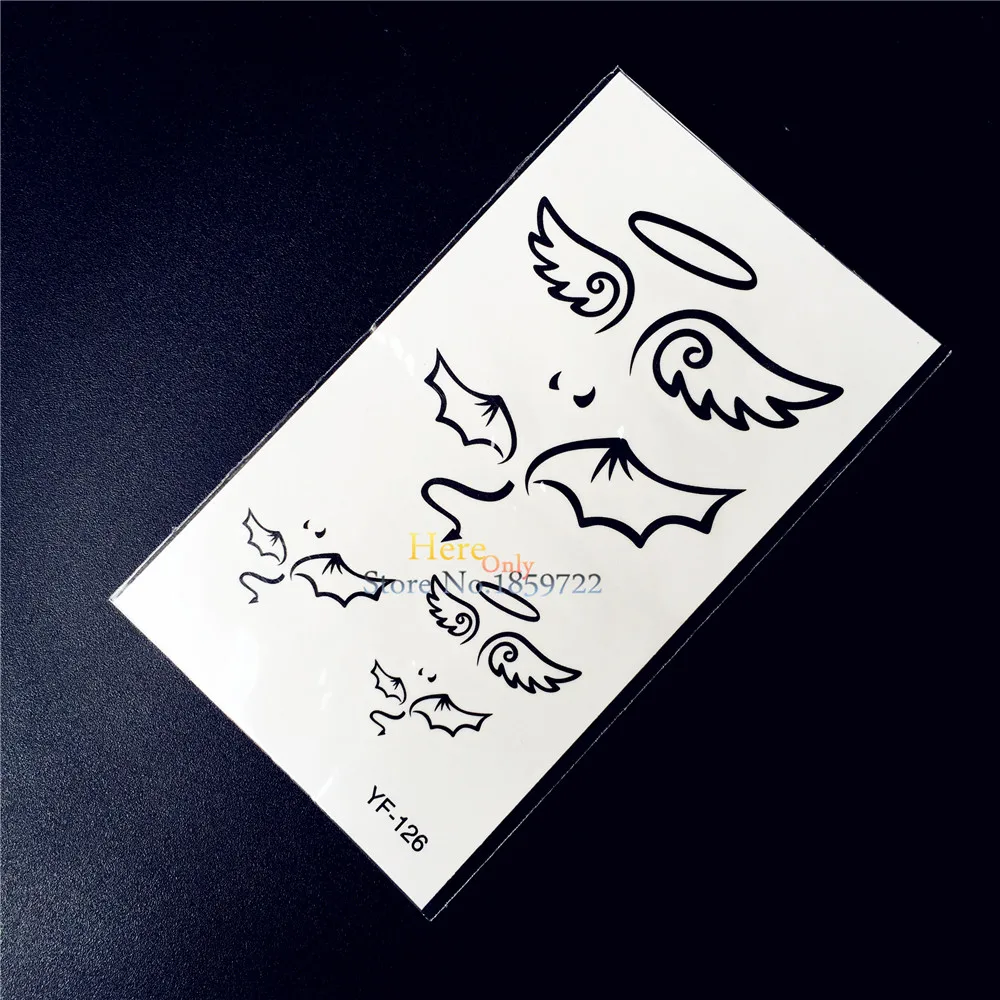 Here Only
Store No:1859722
YF-126